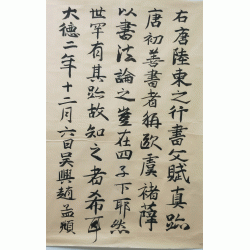 右唐陸東之行書文賦真跡
唐初善書者稱歐虞褚薛
以書法論之豈在四子下耶然
世罕有其跡故知之者希耳
大德二年十二月六日吳興趙孟頫